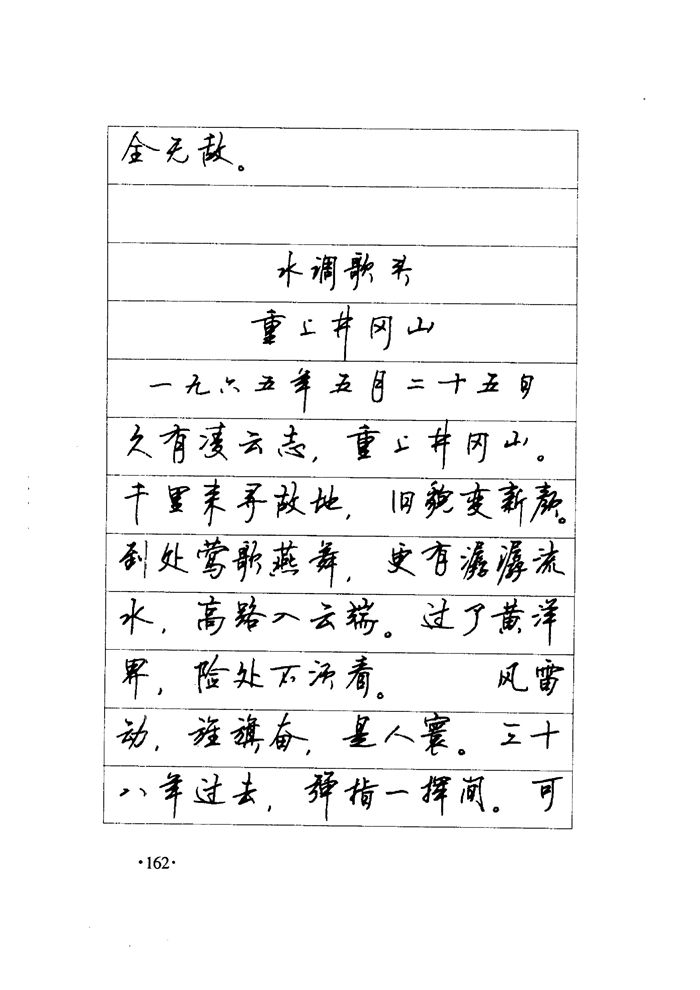 全无敌。
水调歌头
重上井冈山
一九六五年五月二十五日
久有凌云志，重上井冈山。
千里来寻故地，旧貌变新颜。
到处莺歌燕舞，更有潺潺流
水，高路入云端。过了黄洋
界，险处不须看。 风雷
动，旌旗奋，是人寰。三十
八年过去，弹指一挥间。可
·162·